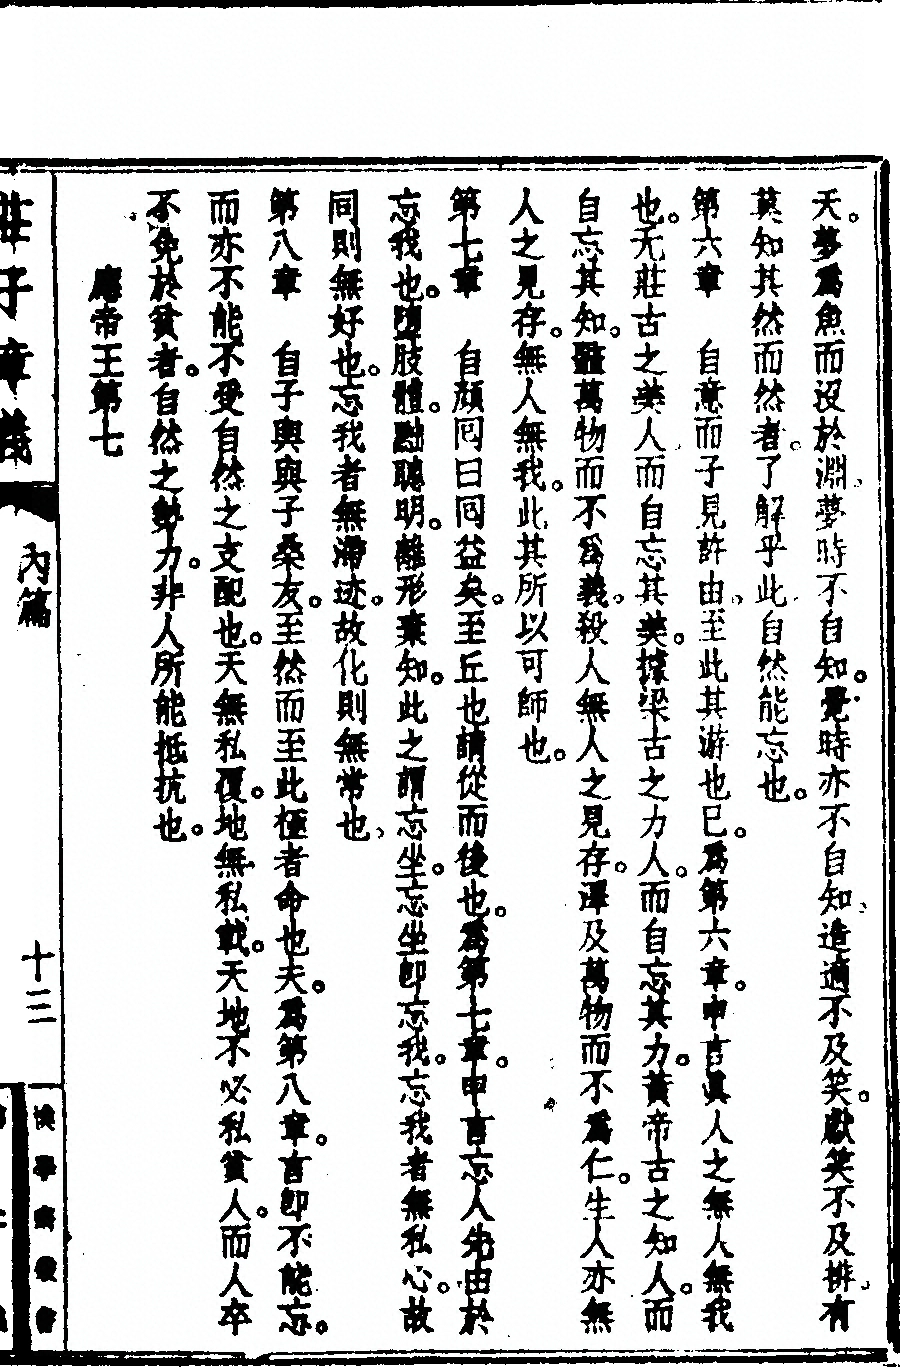 天。夢爲魚而沒於淵、夢時不自知。覺時亦不自知、造適不及笑。獻笑不及排、有
莫知其然而然者。了解乎此、自然能忘也。
第六章　自意而子見許由、至此其游也已。爲第六章。申言眞人之無人無我
也。无莊古之美人、而自忘其美。據梁古之力人。而自忘其力。黃帝古之知人。而
自忘其知。䪠萬物而不爲義。殺人無人之見存。澤及萬物而不爲仁。生人亦無
人之見存。無人無我。此其所以可師也。
第七章　自顏囘曰囘益矣。至丘也請從而後也。爲第七章。申言忘人先由於
忘我也。墮肢體。黜聰明。離形棄知。此之謂忘坐。忘坐卽忘我。忘我者無私心。故
同則無好也。忘我者無滯迹。故化則無常也、
第八章　自子輿與子桑友。至然而至此極者命也夫。爲第八章。言卽不能忘。
而亦不能不受自然之支配也。天無私覆。地無私載。天地不必私貧人。而人卒
不免於貧者。自然之勢力。非人所能抵抗也。
應帝王第七
莊子章義
內篇
十三